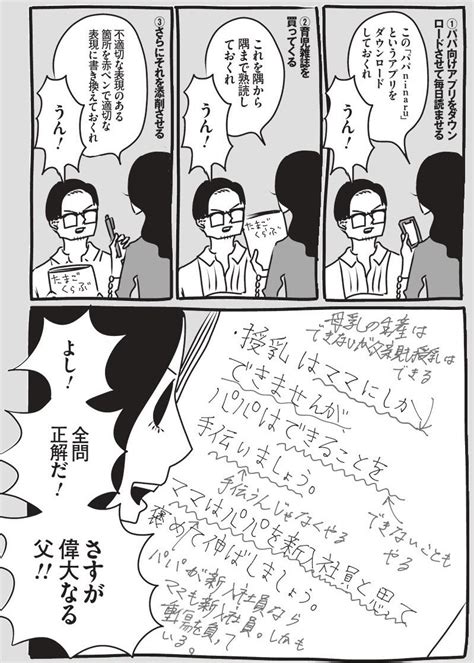 ①パパ向けアプリをダウン
ロードさせて毎日読ませる
この「パパninaru」
というアプリを
ダウンロード
しておくれ
うん!
②育児雑誌を
買ってくる
これを隅から
隅まで熟読し
ておくれ
うん!
たまご
くらぶ
③さらにそれを添削させる
不適切な表現のある
箇所を赤ペンで適切な
表現に書き換えておくれ
うん!
たまご
くらぶ
母乳の生産は
できないが父親も授乳は
できる
・授乳はママにしか
できませんが
パパはできることを
手伝いましょう。
できないことも
やる
手伝うんじゃなくやる
ママはパパを新入社員と思って
褒めて伸ばしましょう。
パパが新入社員なら
ママも新入社員。しかも
重傷を負って
いる。
よし!
全問
正解だ!
さすが
偉大なる
父!!